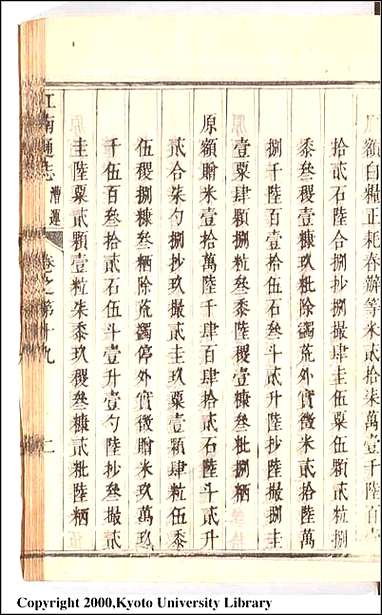 額白糧正耗舂辦等米貳拾叁萬
拾貳石陸合捌抄捌撮肆圭伍粟伍顆貳粒捌
黍叁稷壹糠玖粃除荒蠲外實徵米貳拾陸萬
捌千陸百壹拾伍石叁斗貳升陸抄陸撮捌圭
壹粟肆顆捌粒叁黍陸稷壹糠貳粃捌粞
原額贈米壹拾萬陸千肆百肆拾貳石陸斗貳升
貳合柒勺捌抄玖撮貳圭玖粟壹顆肆粒伍黍
伍稷捌糠叁粞除荒蠲停外實徵贈米玖萬玖
千伍百叁拾貳石伍斗壹升壹勺陸抄叁撮貳
圭陸粟貳顆壹粒柒黍玖稷叁糠貳粃陸粞
江南通志 漕運 卷之第十九 二
Copyright 2000,Kyoto University Library